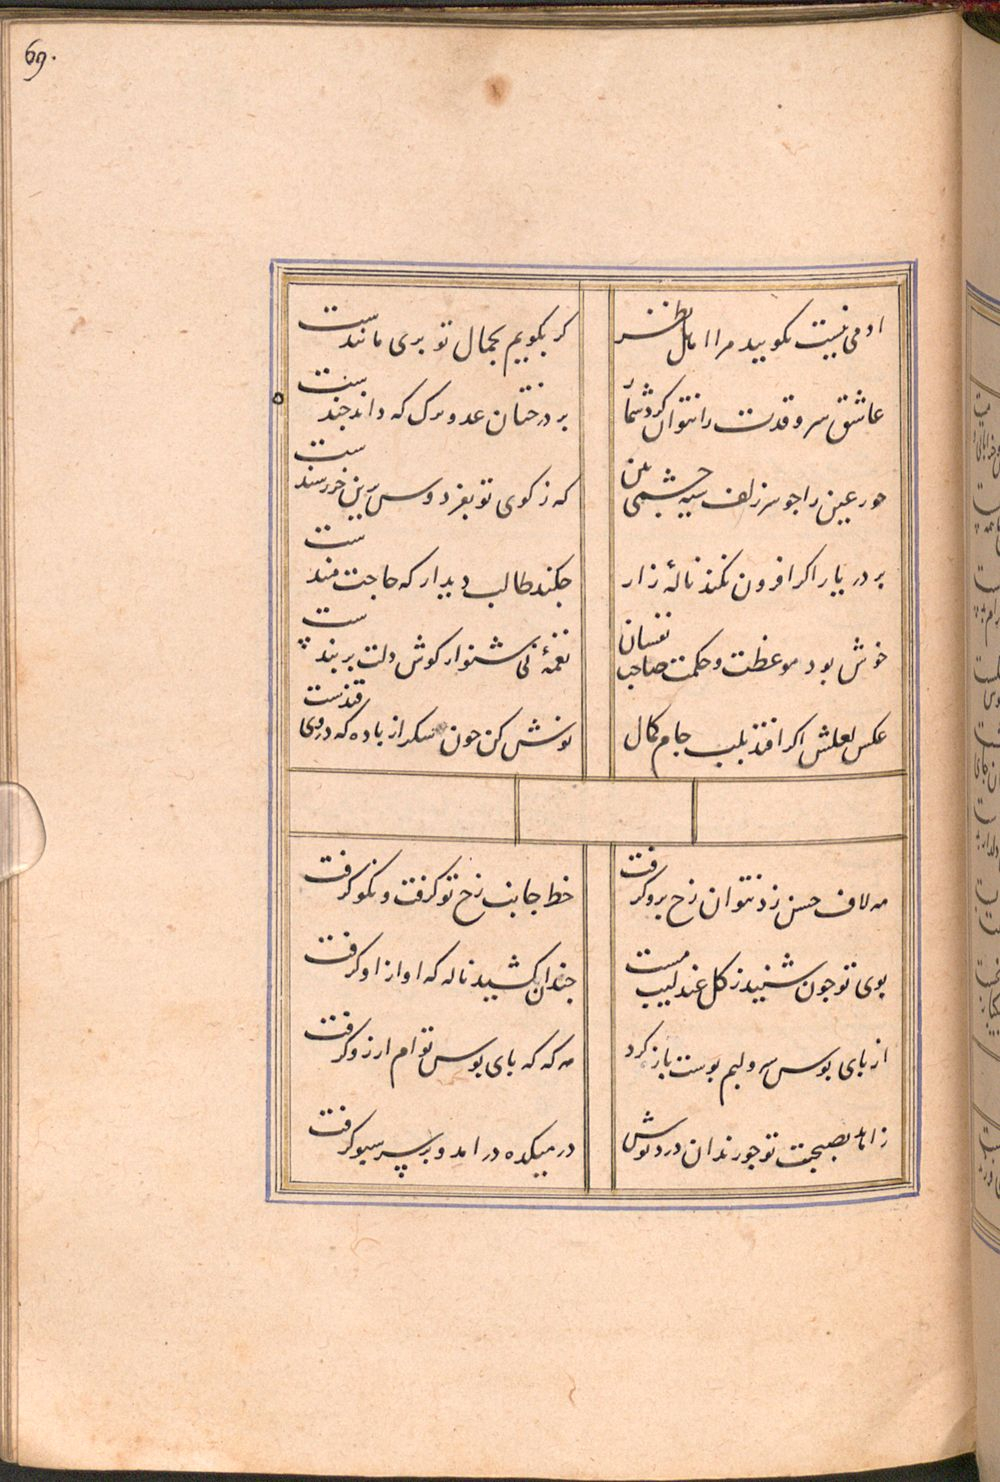 69.
ادمی نیست مکویید مرا اهل نظر
کر بکویم بجمال تو بری مانندست
عاشق سرو قدت را نتوان کرد شمار
بر درختان عدد برک که داند جندست
حور عین را جو سر زلف سیه جشمی
که ز کوی تو بفردوس برین خرسندست
بر در یار اکر افزون نکند نالهٔ زار
جکند طالب دیدار که حاجت مندست
خوش بود موعظت و حکمت صاحب نفسان
نغمهٔ نی شنو ار کوش دلت بر بندست
عکس لعلش اکر افتد بلب جام کمال
نوش کن جون شکر از باده که در وی قندست
مه لاف حسن زد نتوان رخ برو کرفت
خط جانب رخ تو کرفت و نکو کرفت
بوی تو جون شنید ز کل عندلیب مست
جندان کشید ناله که اواز او کرفت
از بای بوس سرو لبم بوست باز کرد
مه که که بای بوس توام ارزو کرفت
زاهد بصحبت تو جو رندان درد نوش
در میکده در امد و بر سر سبو کرفت